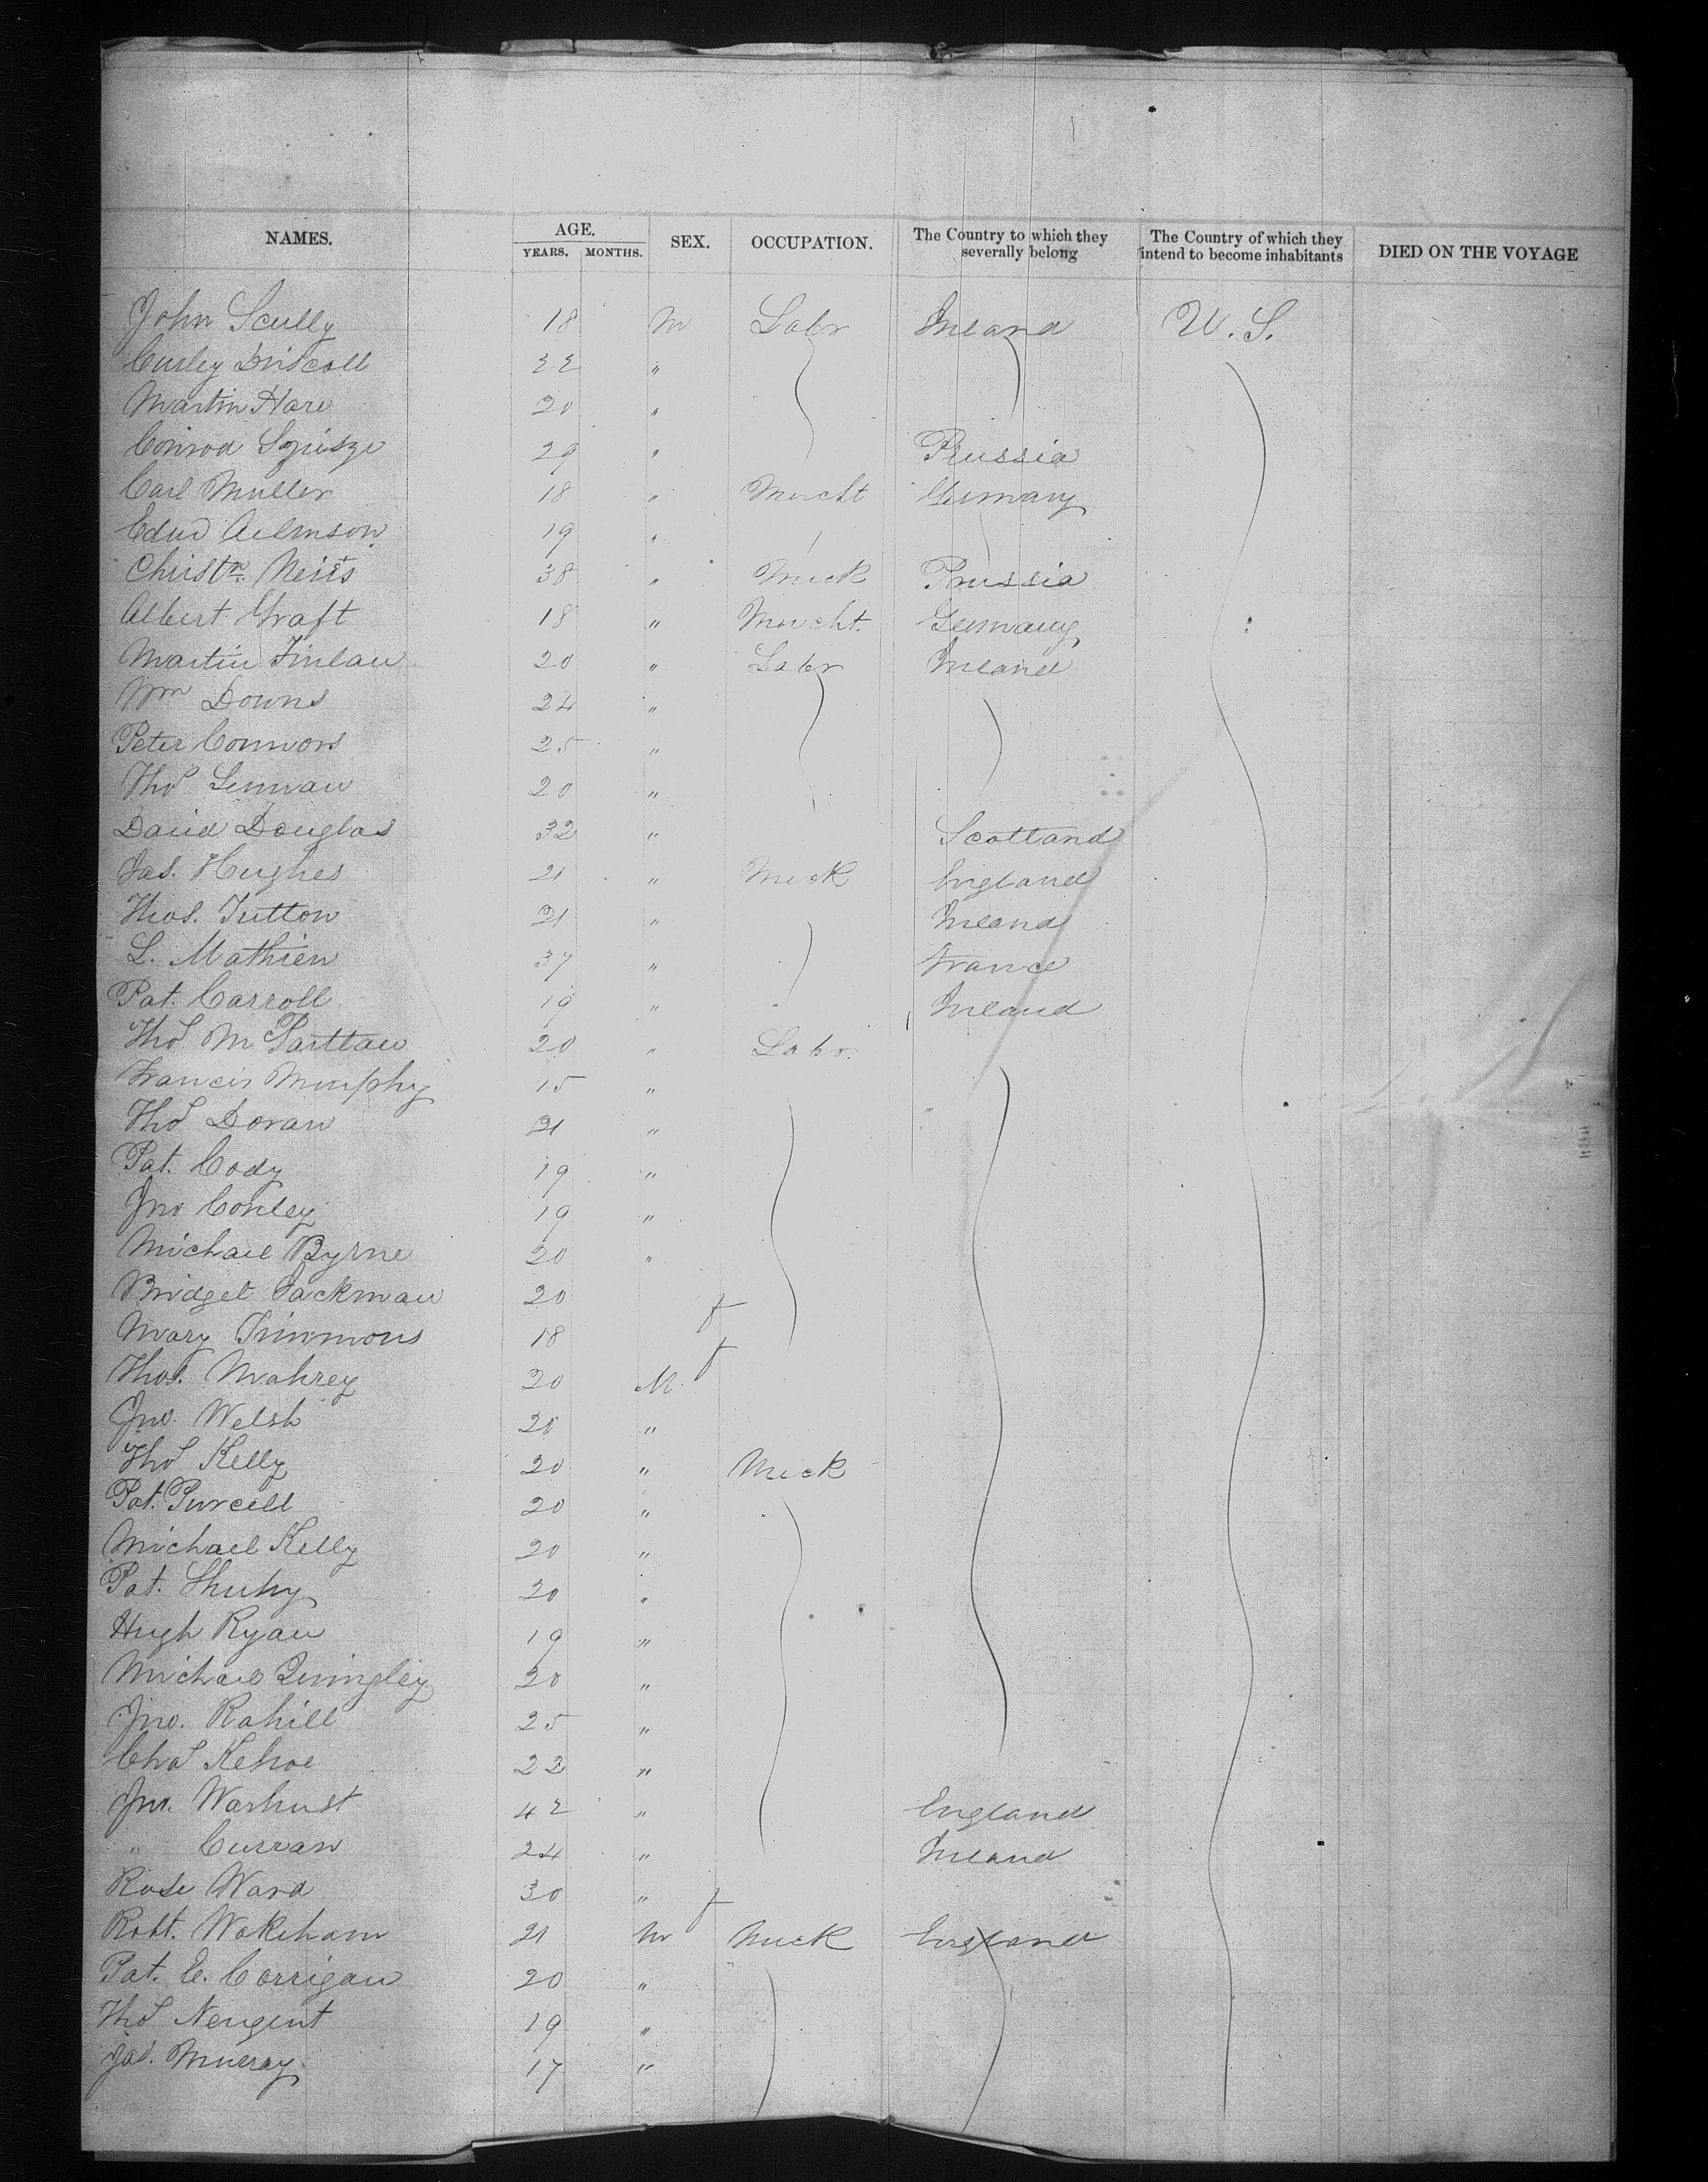 NAMES. AGE. YEARS. MONTHS. SEX. OCCUPATION. The Country to which they severally belong The Country of which they intend to become inhabitants DIED ON THE VOYAGE
John Scully 18 M Labr Ireland U.S.
Curley Driscoll 22 "
Martin Hare 20 "
Conrad 29 " Prussia
Carl Muller 18 " Mercht Germany
Edwd 19 "
Christn. Neiss 38 " Meck Prussia
Albert Graft 18 " Mercht. Germany
Martin Finlan 20 " Labr Ireland
Wm Downs 24 "
Peter Connors 25 "
Thos Lennan 20 "
David Douglas 32 " Scotland
Jas. Hughes 21 " Meck England
Thos. Tutton 21 " Ireland
L. Mathien 37 " France
Pat. Carroll 19 " Ireland
Thos McPartlan 20 " Labr.
Francis Murphy 15 "
Thos Doran 21 "
Pat. Cody 19 "
Jno Conley 19 "
Michael Byrne 20 "
Bridget Packman 20 f
Mary Timmons 18 f
Thos. Mahrey 20 M
Jno. Welsh 20 "
Thos Kelly 20 " Meck
Pat. Purcell 20 "
Michael Kelly 20 "
Pat. Shuhy 20 "
Hugh Ryan 19 "
Michael Quingley 20 "
Jno. Rahill 25 "
Chas Kehoe 22 "
Jno. Warhust 42 " England
" Curran 24 " Ireland
Rose Ward 30 " f
Robt. Wakeham 21 M Meck England
Pat. E. Corrigan 20 "
Thos Neugent 19 "
Jas. Murray 17 "